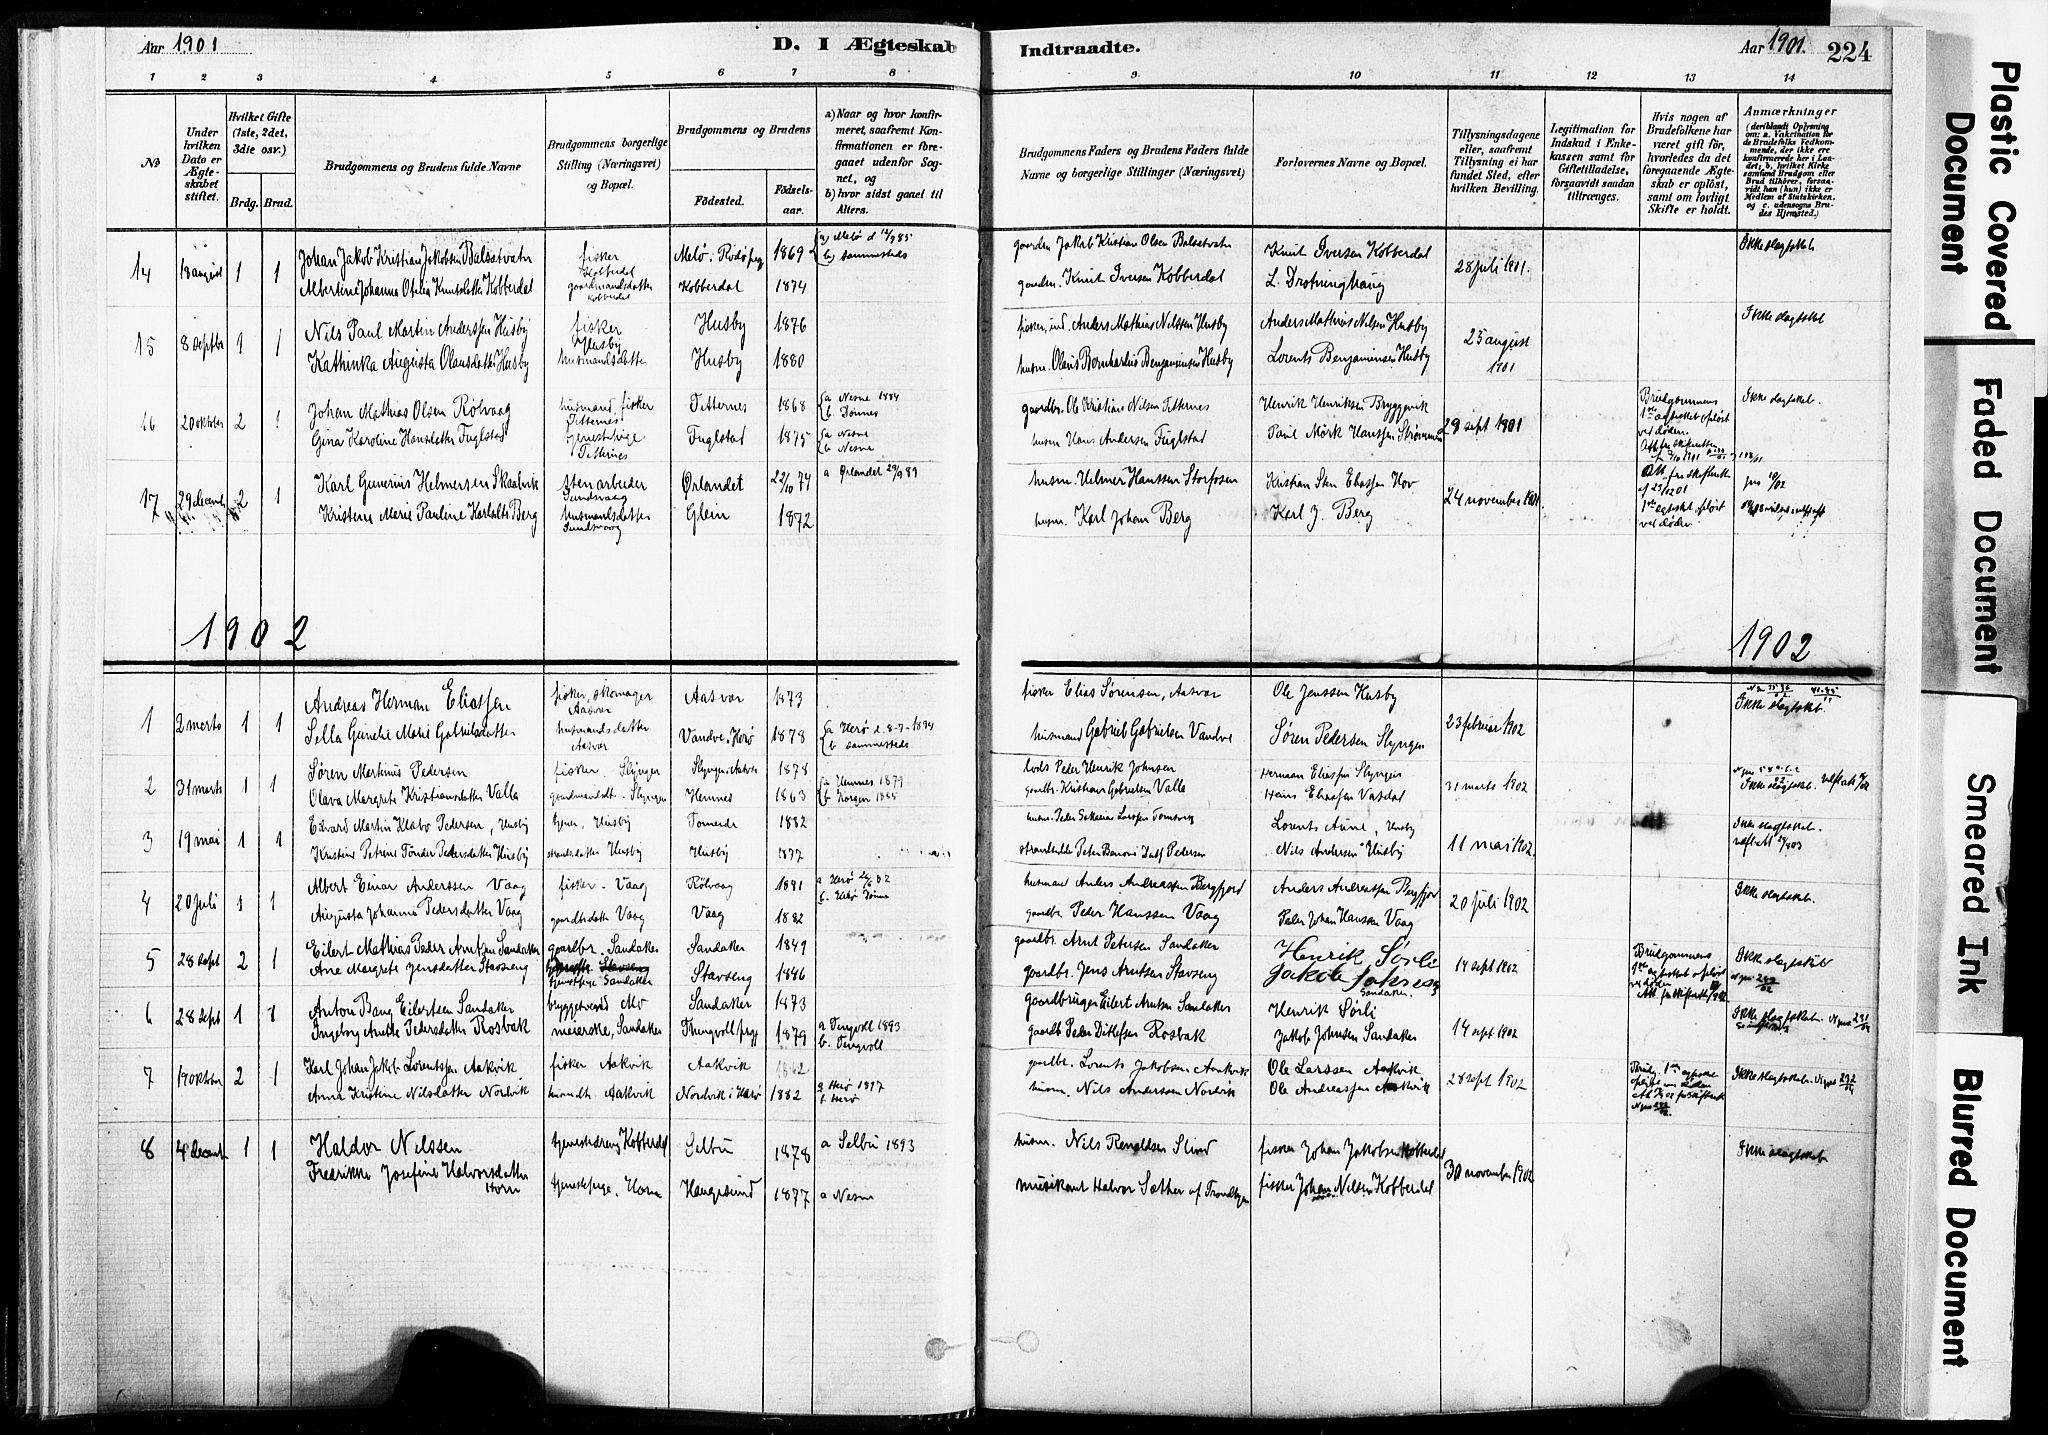 Aar 1901
D. I Ægteskab
Indtraadte.
Aar 1901. 224
1 2 3 4 5 6 7 8
9 10 11 12 13 14
No
Under hvilken Dato er Ægteskabet stiftet.
Hvilket Gifte (1ste, 2det, 3die osv.)
Brdg. Brud.
Brudgommens og Brudens fulde Navne
Brudgommens borgerlige Stilling (Næringsvei) og Bopæl.
Brudgommens og Brudens
Födested.
Födselsaar.
a) Naar og hvor konfirmeret, saafremt Konfirmationen er foregaaet udenfor Sognet, og
b) hvor sidst gaaet til Alters.
Brudgommens Faders og Brudens Faders fulde Navne og borgerlige Stillinger (Næringsvei)
Forlovernes Navne og Bopæl.
Tillysningsdagene eller, saafremt Tillysning ei har fundet Sted, efter hvilken Bevilling.
Legitimation for Indskud i Enkekassen samt for Giftetilladelse, forsaavidt saadan tiltrænges.
Hvis nogen af Brudefolkene har været gift för, hvorledes da det foregaaende Ægteskab er oplöst, samt om lovligt Skifte er holdt.
Anmærkninger
(deriblandt Oplysning om: a. Vakcination for de Brudefolks Vedkommende, der ikke ere konfirmerede her i Landet; b. hvilket Kirkesamfund Brudgom eller Brud tilhörer, forsaavidt han (hun) ikke er Medlem af Statskirken, og c. udensogns Brudes Hjemsted.)
14 18 august 1 1 Johan Jakob Kristian Jakobsen Balsatvatn fisker Kobberdal Melø i Rødø prg 1869 a) Melø d 12/9 85 b) sammesteds gaardm. Jakob Kristian Olsen Balsatvatn Knut Iversen Kobberdal 28 juli 1901. Ikke slegtskab
Albertine Johanna Otelia Knutsdatter Kobberdal gaardmandsdatter Kobberdal Kobberdal 1874 gaardm. Knut Iversen Kobberdal L. Drotninghaug
15 8 septbr 1 1 Nils Paul Martin Anderssen Husby fisker Husby Husby 1876 Anders Mathias Nilssen Husby Anders Mathias Nilsen Husby 25 august 1901 Ikke slegtskab
Kathinka Augusta Olausdatter Husby husmandsdatter Husby 1880 husm. Olaus Bernhardus Benjaminsen Husby Lorents Benjaminsen Husby
16 20 oktober 2 1 Johan Mathias Olsen Rølvaag husmand, fisker Titternes Titternes 1868 a Nesne 1884 b Dønnes gaardbr. Ole Kristian Nilsen Titternes Henrik Henriksen Bryggvik 29 sept 1901 Brudgommens 1ste egteskab opløst ved døden. Ikke slegtskab.
Gina Karoline Hansdatter Fuglstad tjenestepige Titternes Fuglstad 1875 a Nesne b Nesne husm. Hans Andersen Fuglstad Paul Mørk Hanssen Strømmen
17 29 decemb 2 1 Karl Gunerius Helmersen Skaalvik stenarbeider Sundsvaag Ørlandet 22/10 74 a Ørlandet 29/9 89 husm. Helmer Hanssen Storfosen Kristian Sten Eliassen Hov 24 november 1901. Att fra skifteretten af 23/12 01 1ste egteskab opløst ved døden
Kristine Marie Pauline Karlsdtr Berg husmandsdatter Sundsvaag Glein 1872 husm. Karl Johan Berg Karl J. Berg
1902
1902
1 2 marts 1 1 Andreas Herman Eliassen fisker, skomager Aasvær Aasvær 1873 fisker Elias Sørensen, Aasvær Ole Jenssen Husby 23 februar 1902 Ikke slegtskab
Sella Gunelie Marie Gabrielsdatter husmandsdatter Aasvær Vandve, Herø 1878 a Herø d. 8-7-1894 b sammesteds husmand Gabriel Gabrielsen Vandve Søren Pedersen Slyngen
2 31 marts 1 1 Søren Martinus Pedersen fisker. Slyngen Slyngen i Aasvær 1878 lods Peder Henrik Johnsen Herman Eliassen Slyngen 31 marts 1902 Ikke slegtskab.
Olava Margrete Kristiansdatter Valla gaardmandsdt. Slyngen Hemnes 1863 a Hemnes 1879 b Korgen 1885 gaardbr. Kristian Gabrielsen Valla Hans Eliassen Vasdal
3 19 mai 1 1 Edvard Martin Klabo Pedersen, Husby tjener, Husby 1882 Lorents Aune, Husby 11 mai 1902. Ikke slegtskab.
Kristine Petrine Tønder Pedersdatter Husby Husby Husby 1877 Nils Andersen Husby
4 20 juli 1 1 Albert Einar Anderssen Vaag fisker. Vaag Rølvaag 1881 husmand Anders Andreassen Bergfjord Anders Andreassen Bergfjord 20 juli 1902 Ikke slegtskab.
Augusta Johanna Pedersdatter Vaag gaardbdatter Vaag Vaag 1882 gaardbr. Peder Hanssen Vaag Peder Johan Hanssen Vaag
5 28 sept 2 1 Eilert Mathias Peder Arntzen Sandaker gaardbr. Sandaker Sandaker 1849 gaardbr. Arnt Petersen Sandaker Henrik Sørli 14 sept 1902 Brudgommens 1ste egteskab opløst ved døden Ikke slegtskab
Ane Margrete Jensdatter Stavseng tjenestepige Sandaker Stavseng 1846 gaardbr. Jens Arntsen Stavseng Jakob Johnsen Sandaker.
6 28 sept 1 1 Anton Bang Eilertsen Sandaker Mo Sandaker 1873 gaardbruger Eilert Arntsen Sandaker Henrik Sørli 14 sept 1902 Ikke slegtskab.
Ingeborg Anette Pedersdatter Rosbak meierske, Sandaker Tingvoll prg 1879 a Tingvoll 1893 b. Tingvoll gaardb Peder Ditlefsen Rosbak Jakob Johnsen Sandaker
7 19 oktober 2 1 Karl Johan Jakob Lorentssen Aakvik fisker Aakvik Aakvik gaardbr. Lorents Jakobsen Aakvik Ole Larssen Aakvik 28 sept 1902 Ikke slegtskab.
Anna Kristine Nilsdatter Nordvik husmdt. Aakvik Nordvik i Herø 1882 a Herø 1897 b Herø husm. Nils Anderssen Nordvik Ole Andreassen Aakvik
8 4 decemb 1 1 Haldor Nilssen tjenestedreng Kobberdal Selbu 1878 a Selbu 1893 husm. Nils Renaldsen Slind fisker Johan Jakobsen Kobberdal 30 november 1902 Ikke slegtskab
Fredrikke Josefine Halvorsdatter Horn tjenestepige. Horn Haugesund 1877 a Nesne musikant Halvor Sæther af Trondhjem fisker Johan Nilsen Kobberdal
Plastic Covered Document
Faded Document
Smeared Ink
Blurred Document